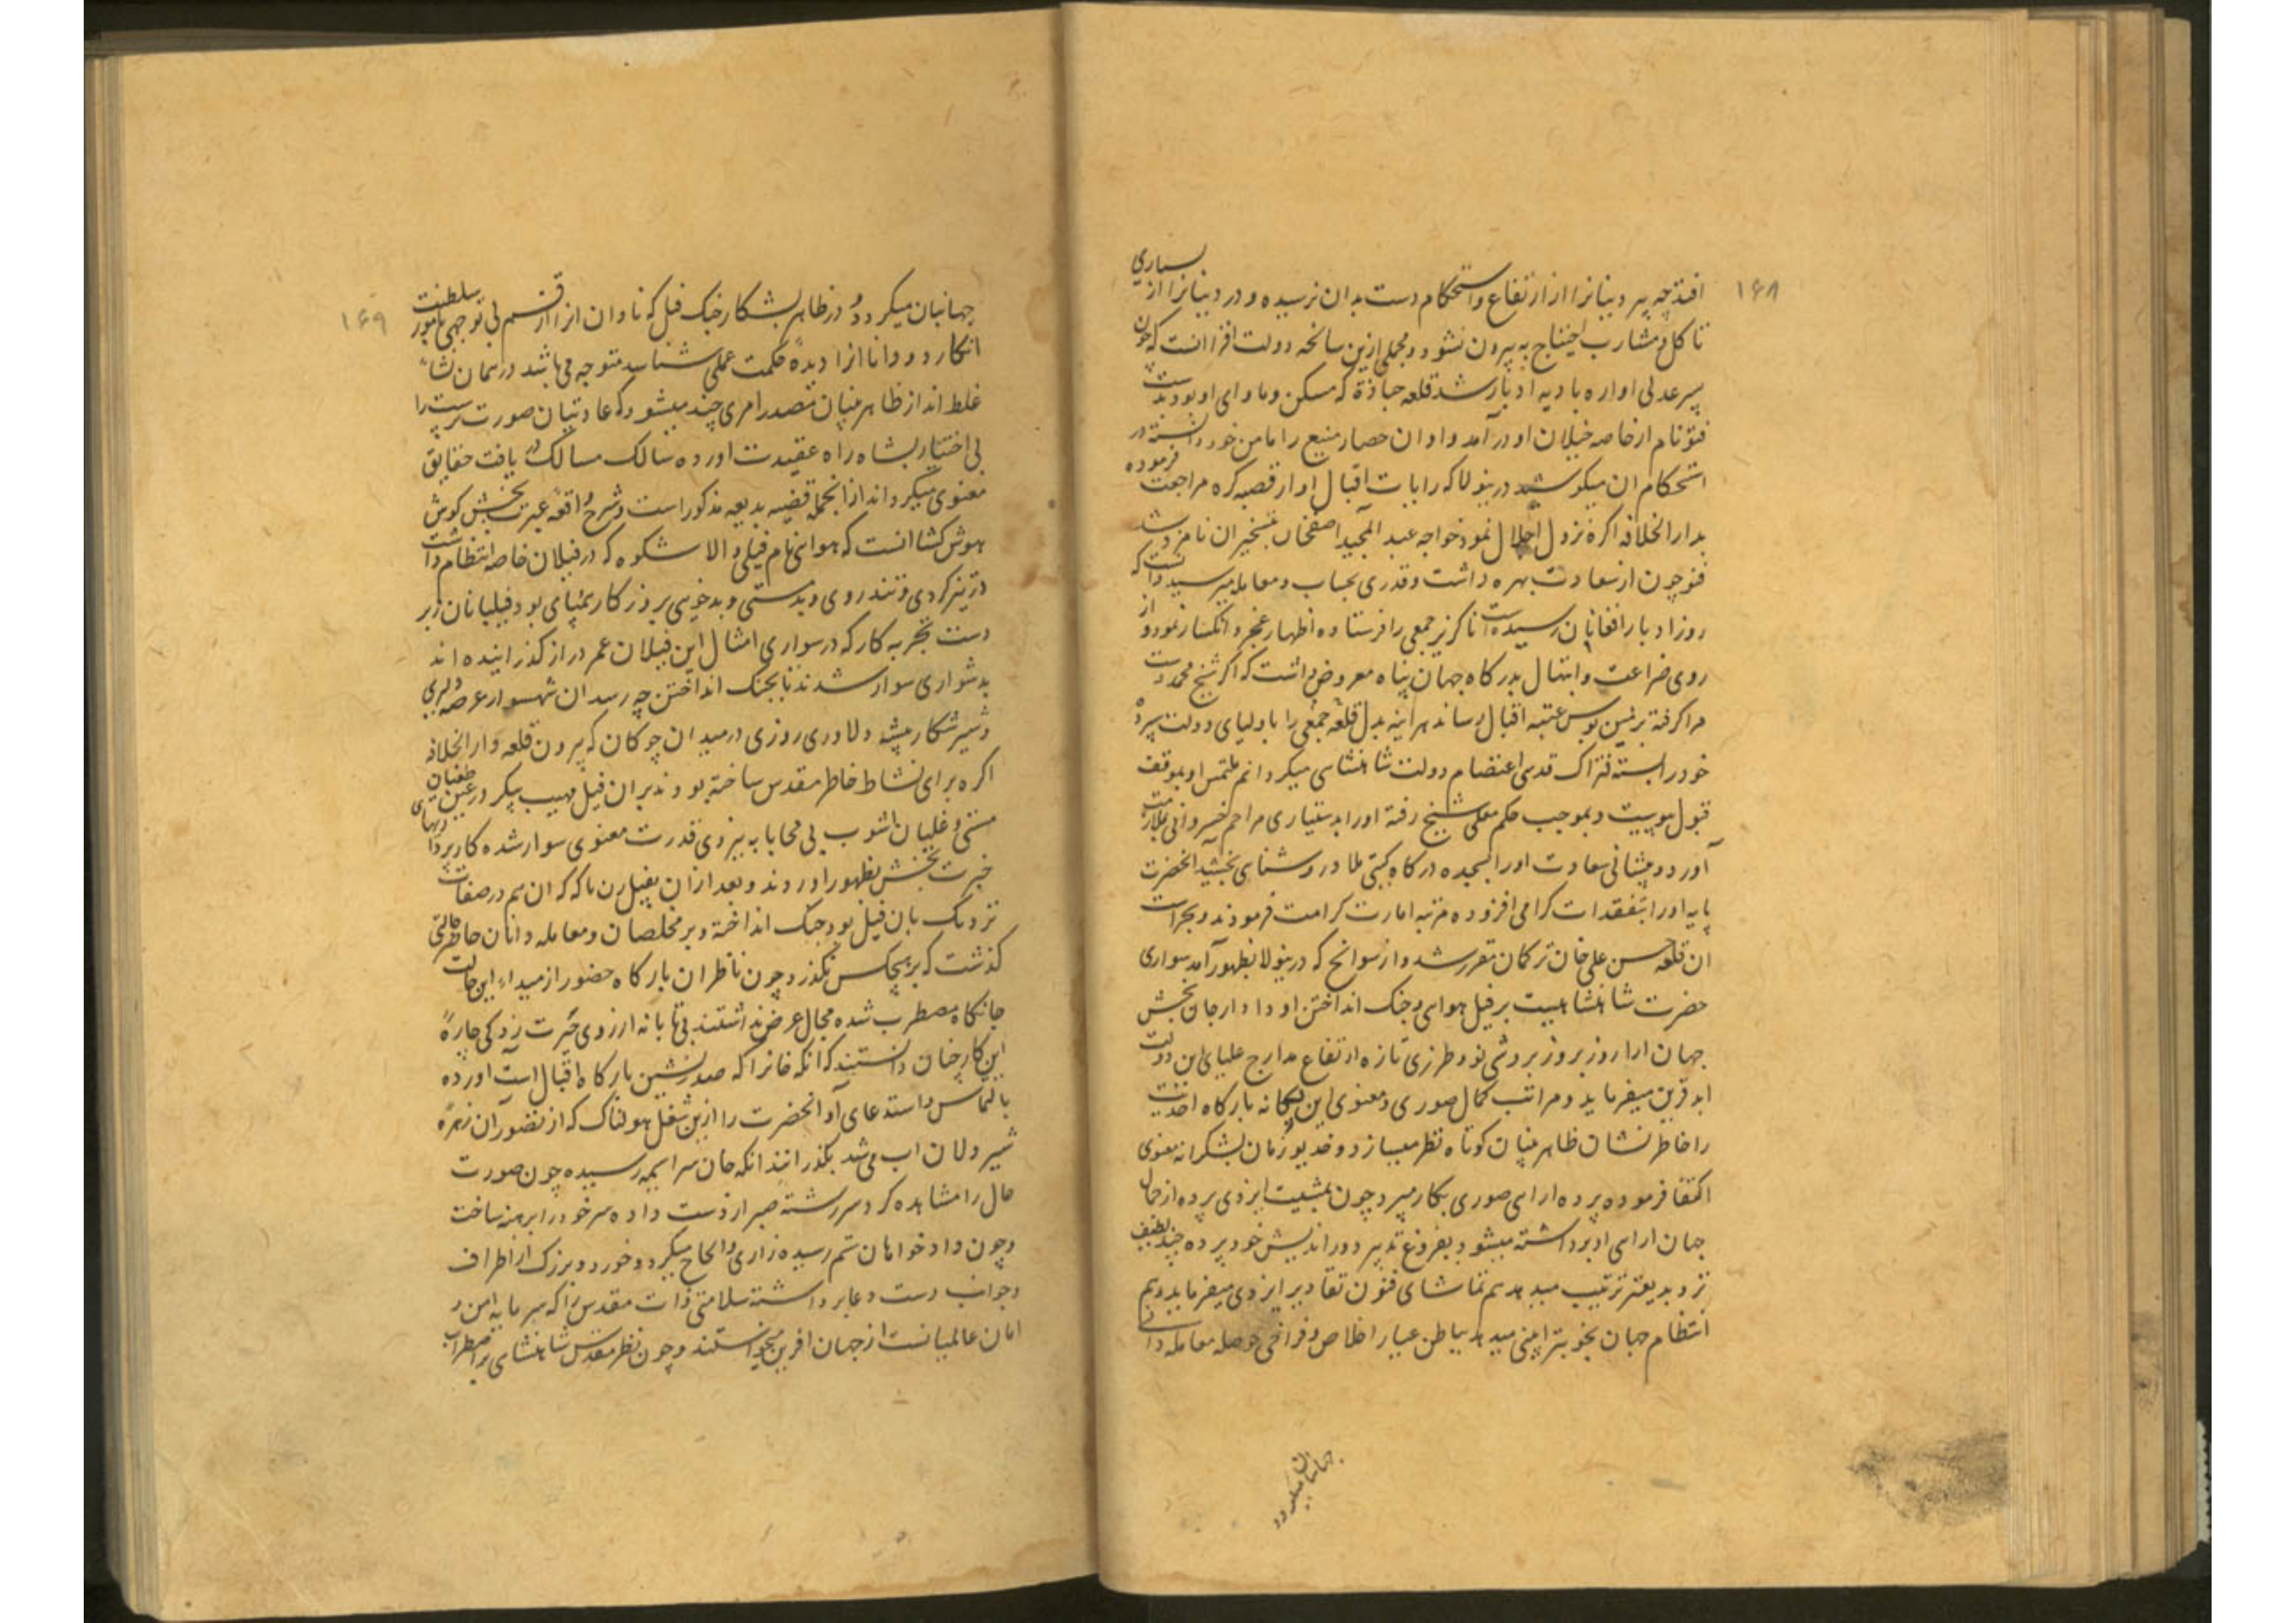 ۱۶۸
افتد چه بیرونیانرا از ارتفاع و استحکام دست بدان نرسیده و درونیانرا از بسیاری
تا کل و مشارب احتیاج به بیرون نشود و مجملی ازین سانحه دولت افزا انست که چون
پسر عدلی اواره بادیه ادبار شد قلعه چناده که مسکن و ماوای او بود بدست
فتو نام از خاصه خیلان او در آمد و او ان حصار منیع را مامن خود دانسته در
استحکام ان میکوشید درینولا که رایات اقبال او از قصبه کره مراجعت فرموده
بدار الخلافه اکره نزول اجلال نمود خواجه عبد المجید اصفخان بتسخیر ان نامزد شد
فتو چون از سعادت بهره داشت و قدری بحساب و معامله میرسید دانست که
روز ادبار افغانان رسیده است ناکزیر جمعی را فرستاده اظهار عجز و انکسار نمود و از
روی ضراعت و ابتهال بدرکاه جهان پناه معروض داشت که اکر شیخ محمد دست
مرا کرفته بزمین بوس عتبه اقبال رساند هراینه بدل قلعه جمعی را باولیای دولت سپرده
خود را بسته فتراک قدسی اعتصام دولت شاهنشاهی میکردانم ملتمس او بموقف
قبول پیوست و بموجب حکم معلی شیخ رفته اورا بدستیاری مراحم خسروانی بملازمت
آورد و پیشانی سعادت اورا بسجده درکاه کیتی ملاذ روشنای بخشید انحضرت
پایه اورا بتفقدات کرامی افزوده مرتبه امارت کرامت فرمودند و بحراست
ان قلعه حسن علی خان ترکمان مقرر شد و از سوانح که درینولا بظهور آمد سواری
حضرت شاهنشاهیست بر فیل هوای و بجنک انداختن او دادار جان بخش
جهان ارا روز بروز بروشی نو و طرزی تازه ارتفاع مدارج علیای این دولت
ابد قرین میفرماید و مراتب کمال صوری و معنوی این یکانه بارکاه احدیت
را خاطر نشان ظاهر بینان کوتاه نظر میسازد و خدیو زمان بشکرانه معنوی
اکتفا فرموده پرده ارای صوری بکار میبرد چون بمشیت ایزدی پرده از جمال
جهان ارای او برداشته میشود بفروغ تدبیر دوراندیش خود پرده چند لطیف
تر و بدیعتر ترتیب میدهد هم تماشای فنون تقادیر ایزدی میفرماید و هم
انتظام جهان بخوبتر ائینی میدهد بباطن عیار اخلاص و فراخی حوصله معامله دانی
جهانیان میکردد
۱۶۹
جهانیان میکردد و در ظاهر بشکار جنک فیل که نادان انرا از قسم بی توجهی بامور سلطنت
انکارد و دانا انرا دیده حکمت عملی شناسد متوجه می باشد در همان نشاء
غلط انداز ظاهر بینان مصدر امری چند میشود که عادتیان صورت پرست را
بی اختیار بشاه راه عقیدت اورده سالک مسالک در یافت حقایق
معنوی میکرداند از انجمله قضیه بدیعه مذکور است و شرح واقعه عبرت بخش کوش
هوش کشا انست که هوای نام فیلی والا شکوه که در فیلان خاصه انتظام داشت
در تیز کردی و تندروی و بدمستی و بدخویی بر روزکار یمتای بود و فیلبانان زبر
دست تجربه کار که در سواری امثال این فیلان عمر دراز کذرانیده اند
بدشواری سوار شدند تا بجنک انداختن چه رسد ان شهسوار عرصه دلیری
و شیر شکار بیشه دلاوری روزی در میدان چوکان که بیرون قلعه دار الخلافه
اکره برای نشاط خاطر مقدس ساخته بودند بران فیل مهیب پیکر در عین طغیان
مستی و غلیان اشوب بی محابا به نیروی قدرت معنوی سوار شده کار پردازیهای
خیرت بخش بظهور اوردند و بعد ازان بفیل رن باکه که ان هم در صفات
نزدیک بان فیل بود بجنک انداخته و بر مخلصان و معامله دانان حاضر حالتی
کذشت که بر هیچکس نکذرد چون ناظران بارکاه حضور از مبداء این حالت
جانکاه مضطرب شده مجال عرض نداشتند بی تابانه از روی حیرت زدکی چاره
این کار چنان دانستند که انکه خانرا که صدرنشین بارکاه اقبال است اورده
بالتماس و استدعای او انحضرت را ازین شغل هولناک که از تصور ان زهره
شیر دلان اب می شد بکذرانند انکه خان سراسیمه رسیده چون صورت
حال را مشاهده کرد سر رشته صبر از دست داده سر خود را برهنه ساخت
و چون داد خواهان ستم رسیده زاری و الحاح میکرد و خورد و بزرک از اطراف
و جوانب دست دعا برداشته سلامتی ذات مقدس را که سرمایه امن و
امان عالمیانست از جهان افرین میخواستند و چون نظر مقدس شاهنشاهی بر اضطراب